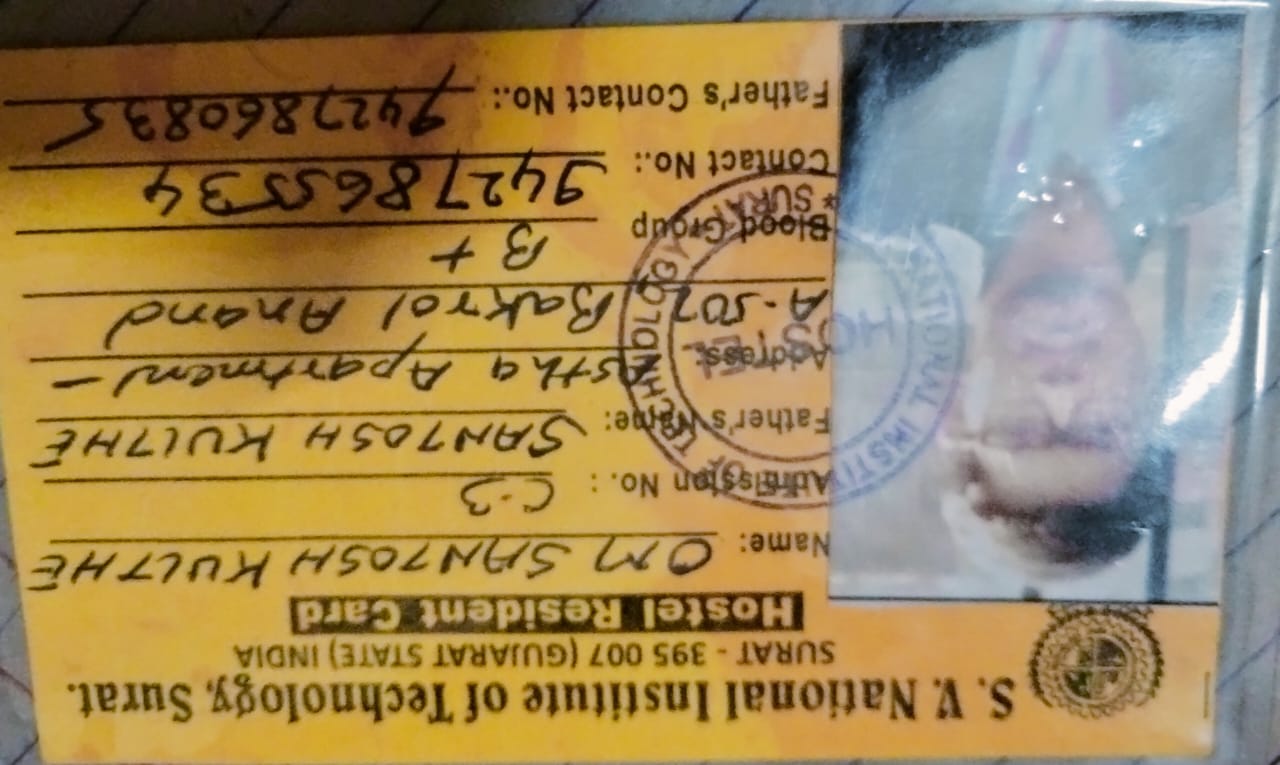 S. V. National Institute of Technology, Surat.
SURAT - 395 007 (GUJARAT STATE) INDIA
Hostel Resident Card
Name: OM SANTOSH KULTHE
Admission No.: C-3
Father's Name: SANTOSH KULTHE
Address: Astha Apartment -
A-507 Bakrol Anand
Blood Group B +
Contact No.: 9427865534
Father's Contact No.: 9427860835
NATIONAL INSTI OF TECHNOLOGY * SURAT *